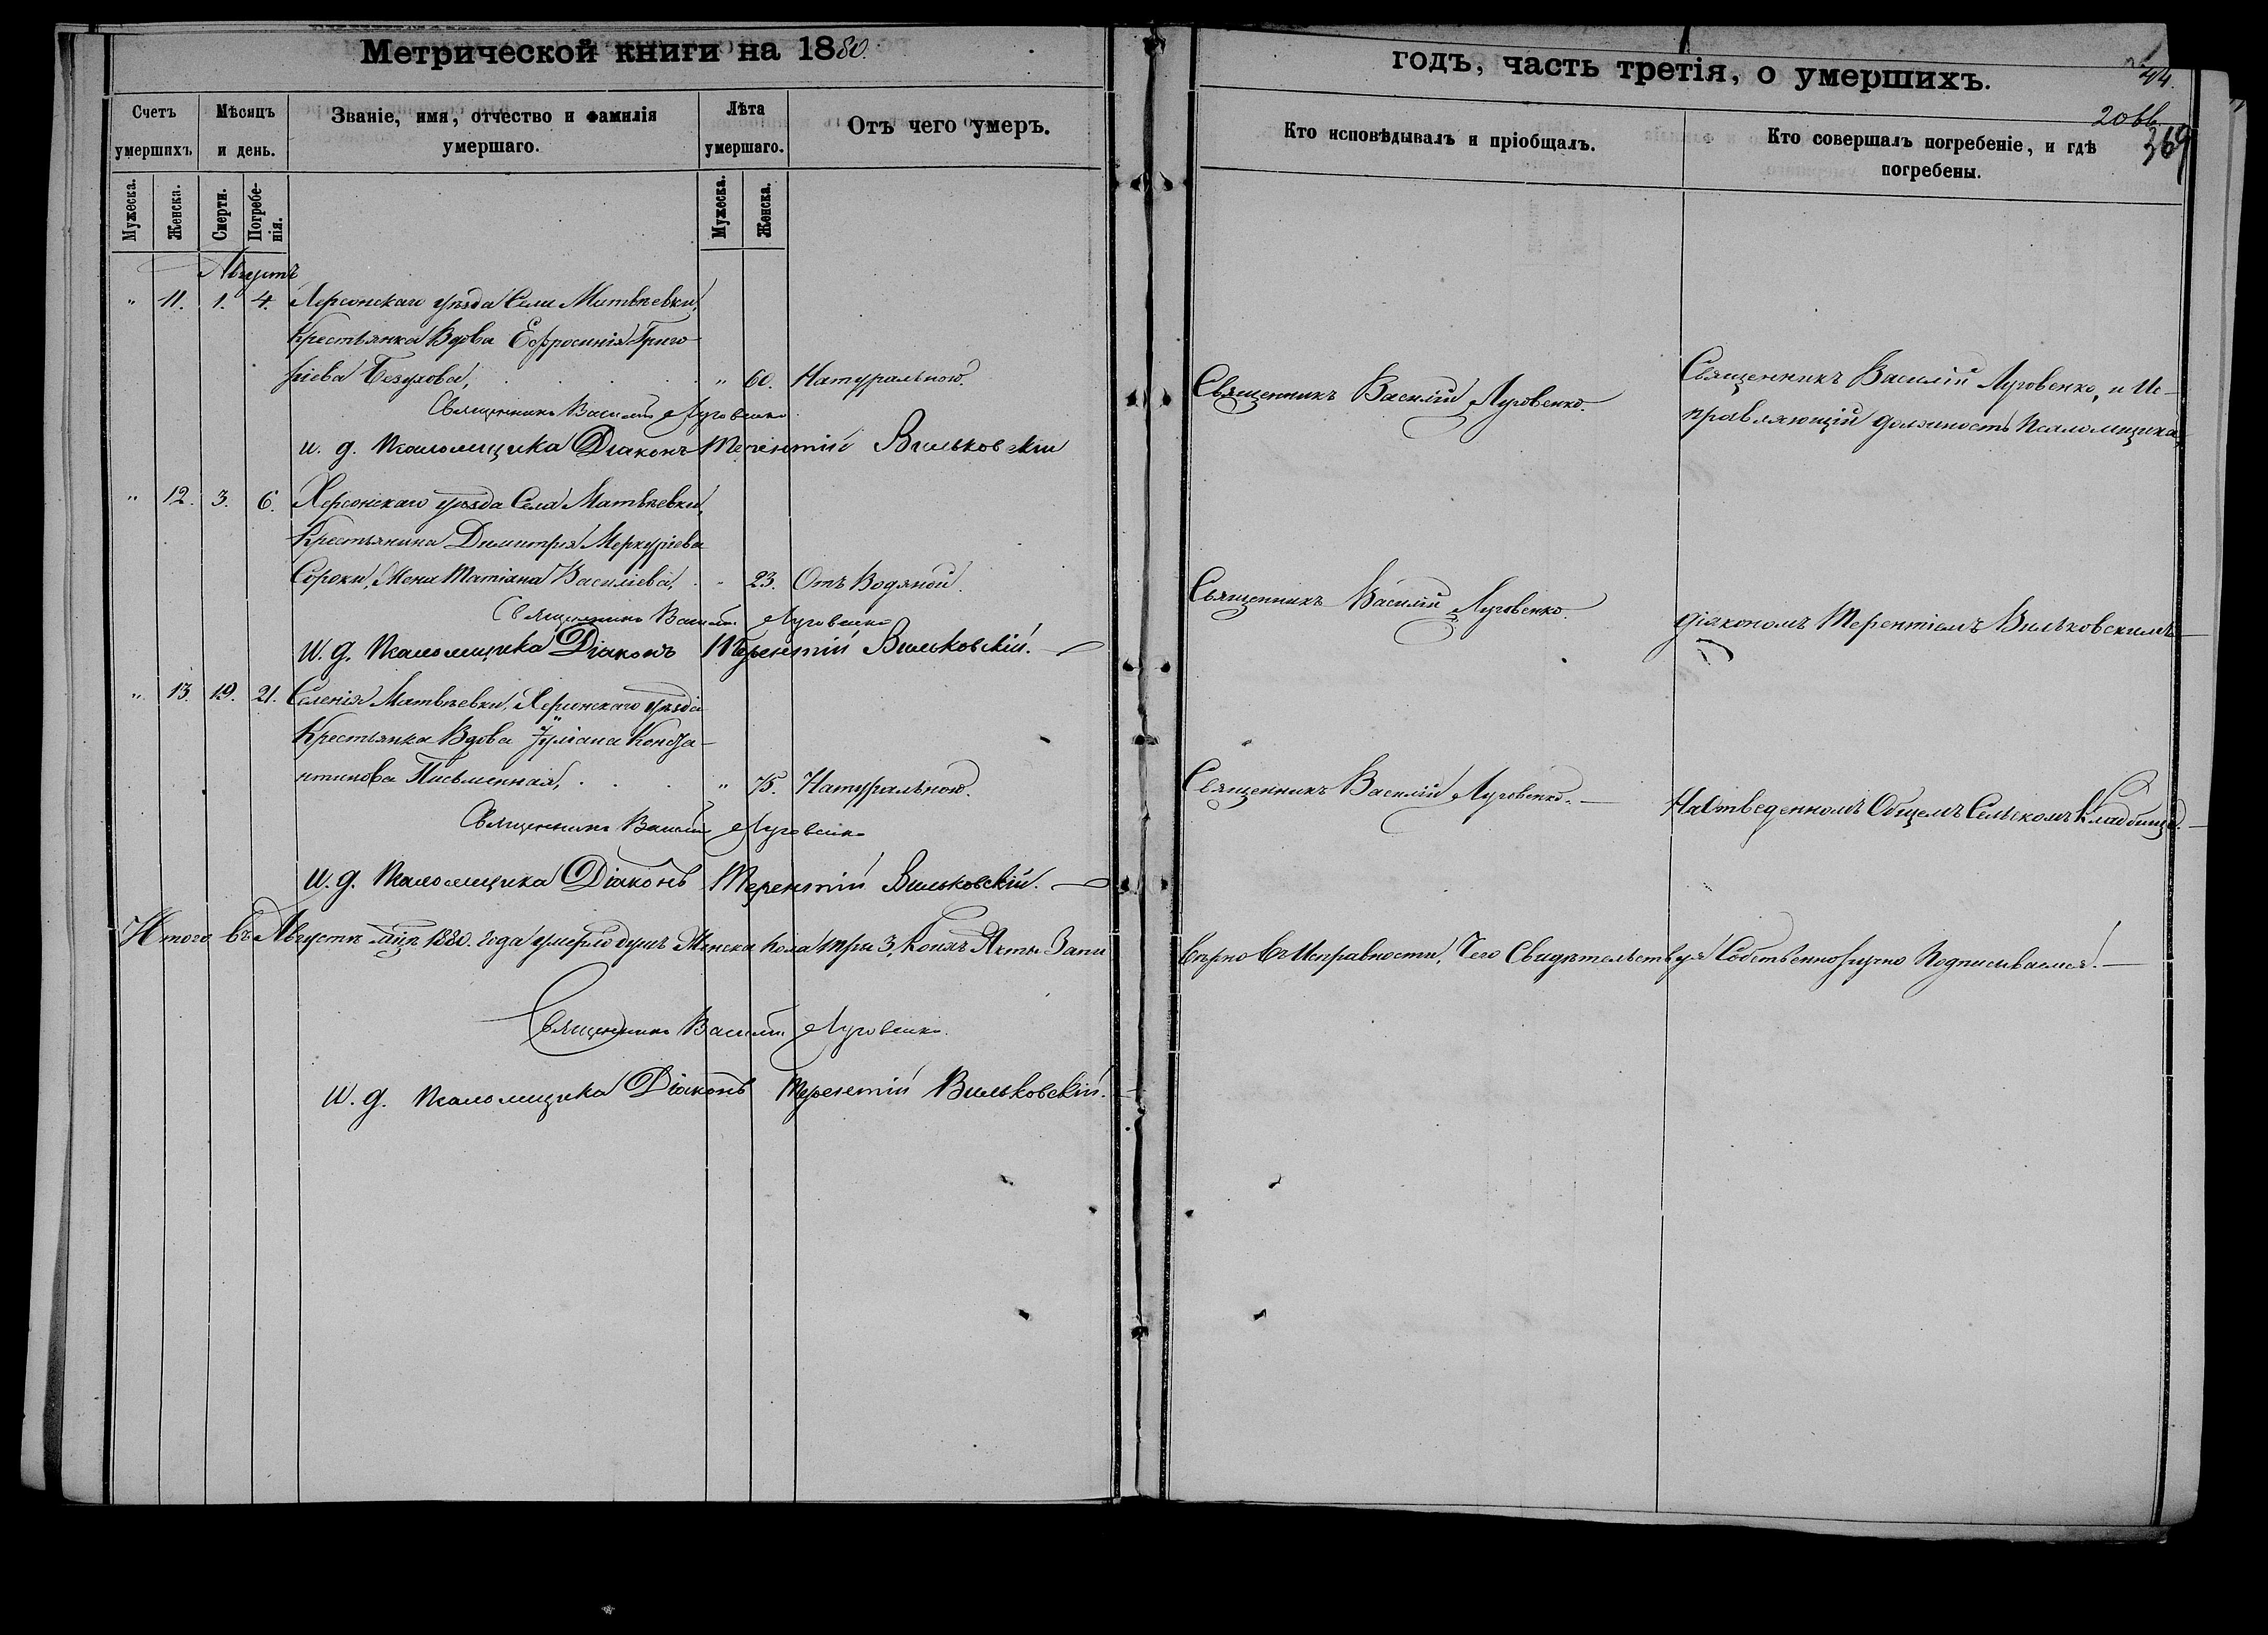 Метрической книги на 1880.
годъ, часть третія, о умершихъ.
44.
20вв.
369
Счетъ умершихъ.
Мѣсяцъ и день.
Званіе, имя, отчество и фамилія умершаго.
Лѣта умершаго.
Отъ чего умеръ.
Кто исповѣдывалъ и пріобщалъ.
Кто совершалъ погребеніе, и гдѣ погребены.
Мужеска.
Женска.
Смерти.
Погребенія.
Мужеска.
Женска.
Августъ
" 11. 1. 4. Херсонскаго уѣзда Села Матвѣевки,
Крестьянка Вдова Ефросинія Григо
ріева Безухова, " 60. Натуральною.
Священникъ Василій Луговенко.
Священникъ Василій Луговенко, и Ис-
правляющій должность Псаломщика
Священникъ Василій Луговенко
и. д. Псаломщика Діаконъ Терентій Вильковскій
" 12. 3. 6. Херсонскаго уѣзда Села Матвѣевки,
Крестьянина Димитрія Меркуріева
Сороки, Жена Татіана Василіева, " 23. Отъ Водяной.
Священникъ Василій Луговенко.
діякономъ Терентіемъ Вильковскимъ
Священникъ Василій Луговенко
И. д. Псаломщика Діаконъ Терентій Вильковскій.
" 13. 19. 21. Селенія Матвѣевки, Херсонскаго уѣзда
Крестьянка Вдова Іуліана Конста-
нтинова Письменная, " 75. Натуральною.
Священникъ Василій Луговенко.
На Отведенномъ Общемъ Сельскомъ Кладбищѣ.
Священникъ Василій Луговенко
И. д. Псаломщика Діаконъ Терентій Вильковскій.
Итого въ Августѣ мцѣ 1880. года умерло душъ Женска пола три 3, Коихъ Акты Запи
Вѣрно Въ Исправности, Чего Свидѣтельствуя Собственноручно Подписываемся.
Священникъ Василій Луговенко.
И. д. Псаломщика Діаконъ Терентій Вильковскій.